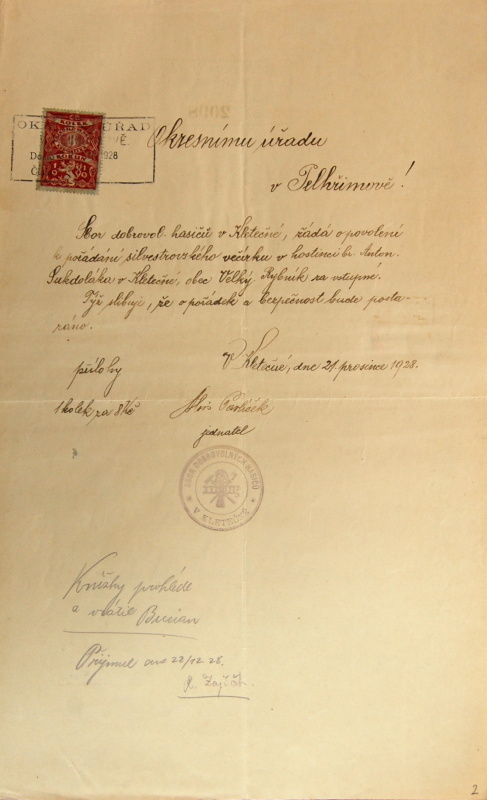 Okresnímu úřadu
v Pelhřimově!
Sbor dobrovol. hasičů v Kletečné, žádá o povolení
k pořádání silvestrovského večírku v hostinci bř. Anton.
Sukdoláka v Kletečné, obec Velký Rybník za vstupné.
Týž slibuje, že o pořádek a bezpečnost bude posta-
ráno.
V Kletečné, dne 21. prosince 1928.
přílohy
1 kolek za 8 Kč
jednatel
SBOR DOBROVOLNÝCH HASIČŮ
V KLETEČNÉ
Knížky prohlédl
a vrátil
Přijmul dne 22/12 28.
2